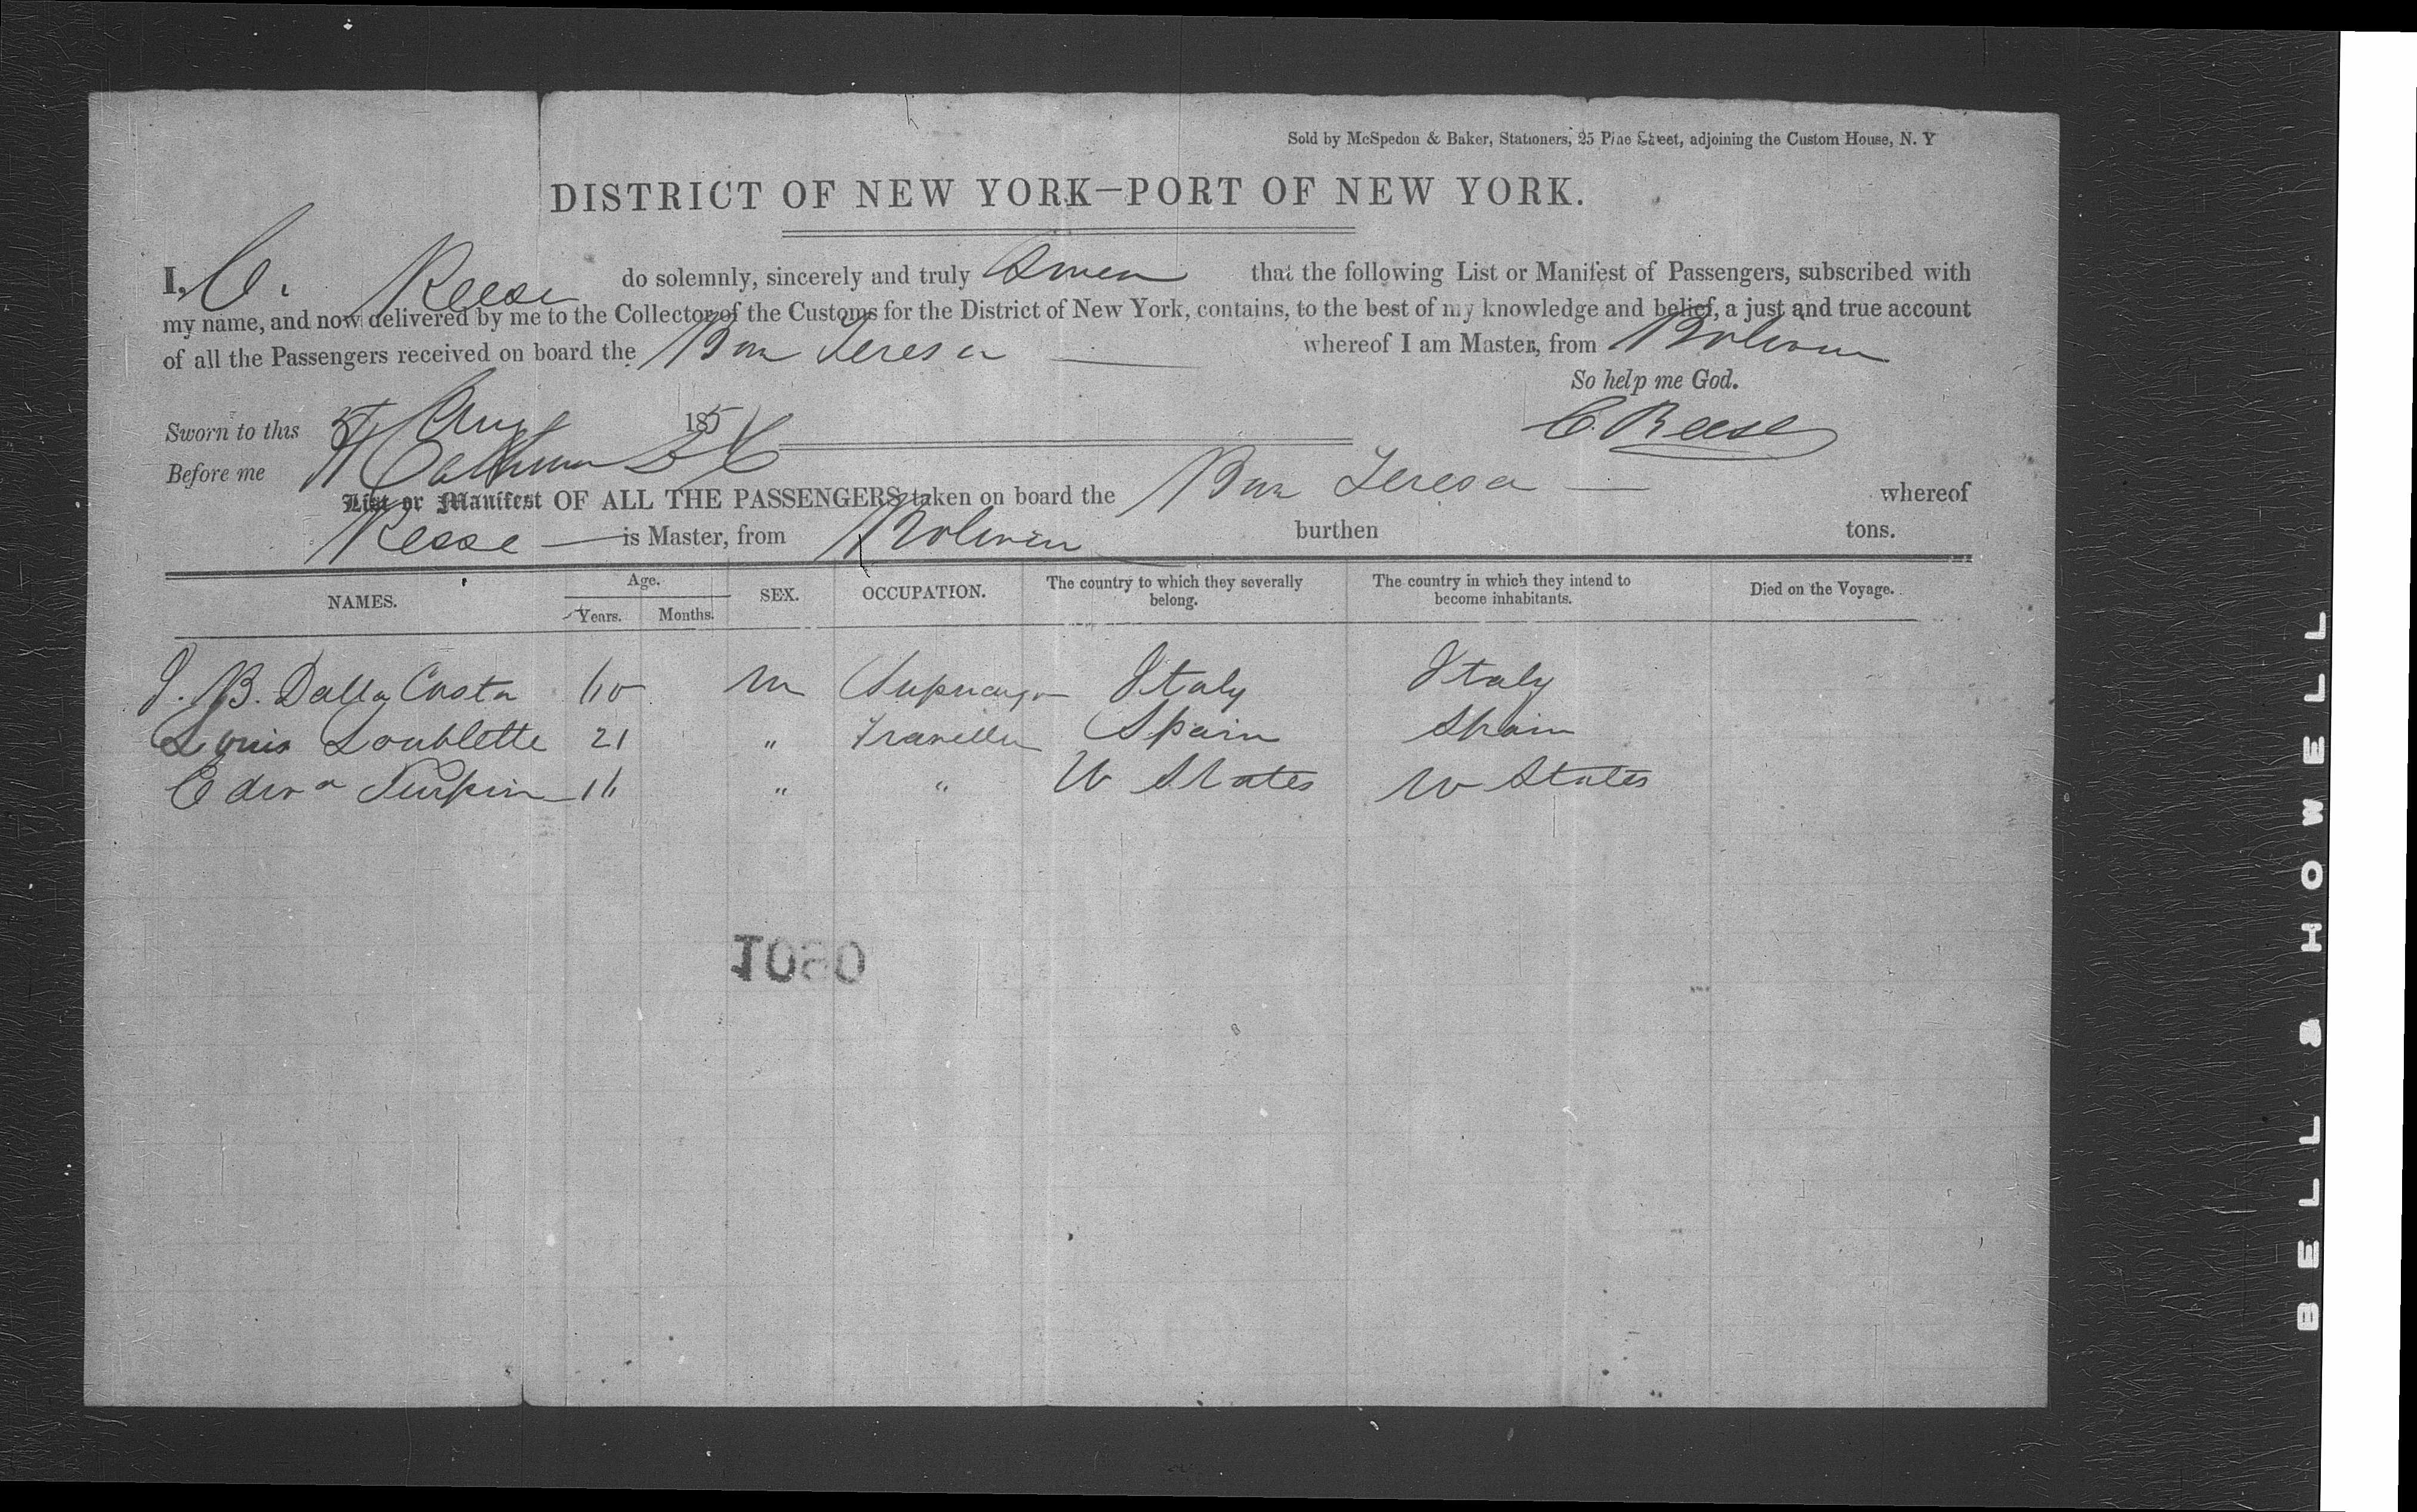 Sold by McSpedon & Baker, Stationers, 25 Pine Street, adjoining the Custom House, N. Y
DISTRICT OF NEW YORK—PORT OF NEW YORK.
I, C. Reese do solemnly, sincerely and truly Swear that the following List or Manifest of Passengers, subscribed with
my name, and now delivered by me to the Collector of the Customs for the District of New York, contains, to the best of my knowledge and belief, a just and true account
of all the Passengers received on board the Teresa whereof I am Master, from Bolivar
So help me God.
Sworn to this Aug 185 C. Reese
Before me
List or Manifest OF ALL THE PASSENGERS taken on board the Teresa whereof
Reese is Master, from Bolivar burthen tons.
NAMES. Age. Years. Months. SEX. OCCUPATION. The country to which they severally belong. The country in which they intend to become inhabitants. Died on the Voyage.
J. B. Dalla Costa 60 M Supercargo Italy Italy
Louis Soublette 21 " Traveller Spain Spain
Edwd Turpin 16 " " U States U States
1080
BELL & HOWELL